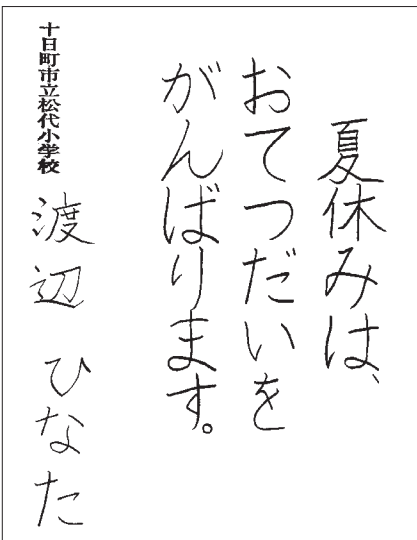 夏休みは、
おてつだいを
がんばります。
十日町市立松代小学校
渡辺 ひなた